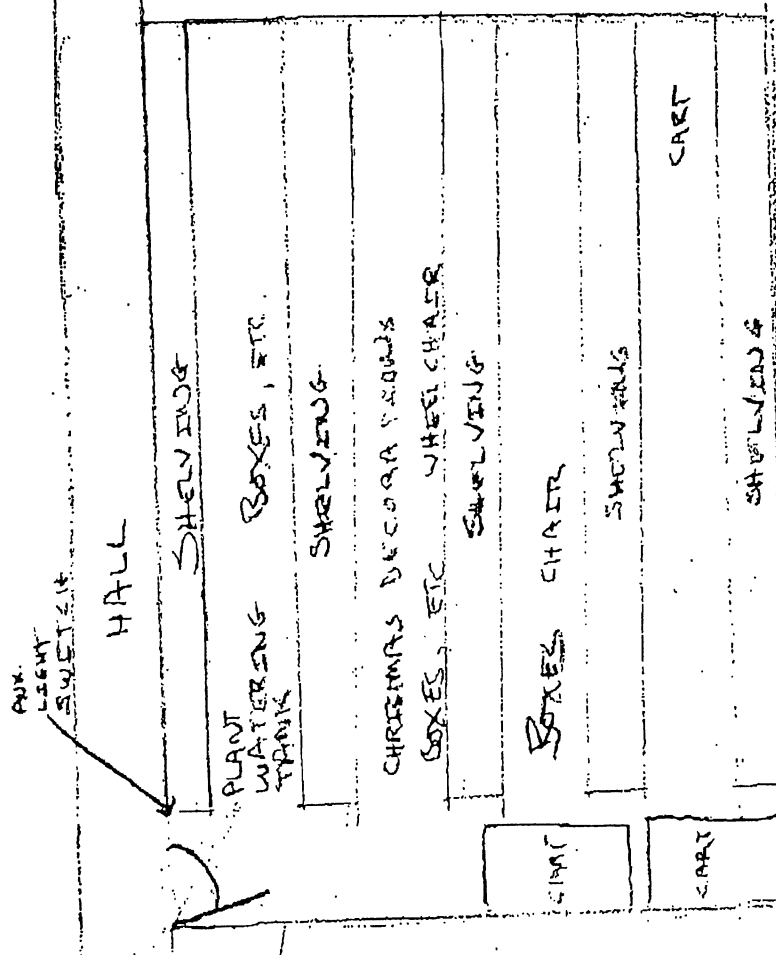 AUX.
LIGHT
SWITCH
HALL
SHELVING
PLANT
WATERING
TANK
BOXES, ETC.
SHELVING
CHRISTMAS DECORATIONS
BOXES, ETC WHEELCHAIR
SHELVING
BOXES CHAIR
SHELVING
CART
SHELVING
CART
CART